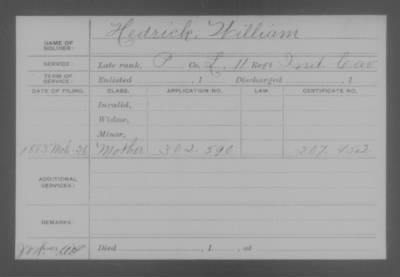 NAME OF SOLDIER: Hedrick, William
SERVICE: Late rank, P Co. L, 11 Reg't Ind. Cav
TERM OF SERVICE: Enlisted , 1 Discharged , 1
DATE OF FILING. CLASS. APPLICATION NO. LAW. CERTIFICATE NO.
Invalid,
Widow,
Minor,
1883 Mch. 26 Mother 302.590 207.452
ADDITIONAL SERVICES:
REMARKS:
Died , 1 , at